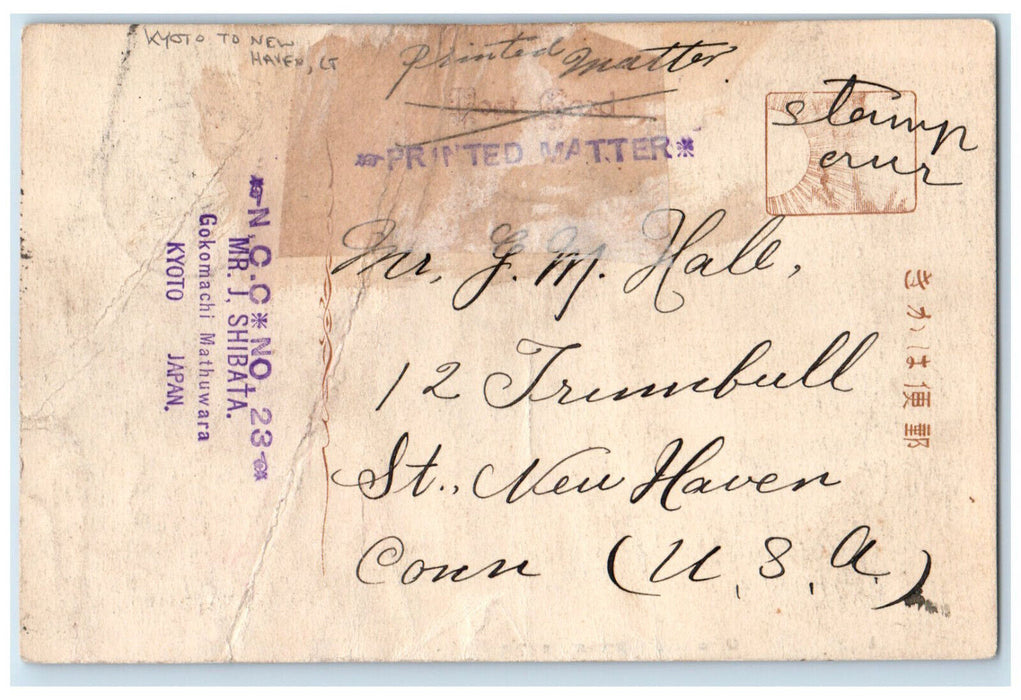 KYOTO TO NEW
HAVEN, CT
Printed Matter.
Post Card
PRINTED MATTER
stamp
N.C.C NO. 23
MR. J, SHIBATA.
Gokomachi Mathuwara
KYOTO JAPAN.
Mr. G. M. Hall,
12 Trumbull
St., New Haven
Conn (U.S.A.)
きかは便郵